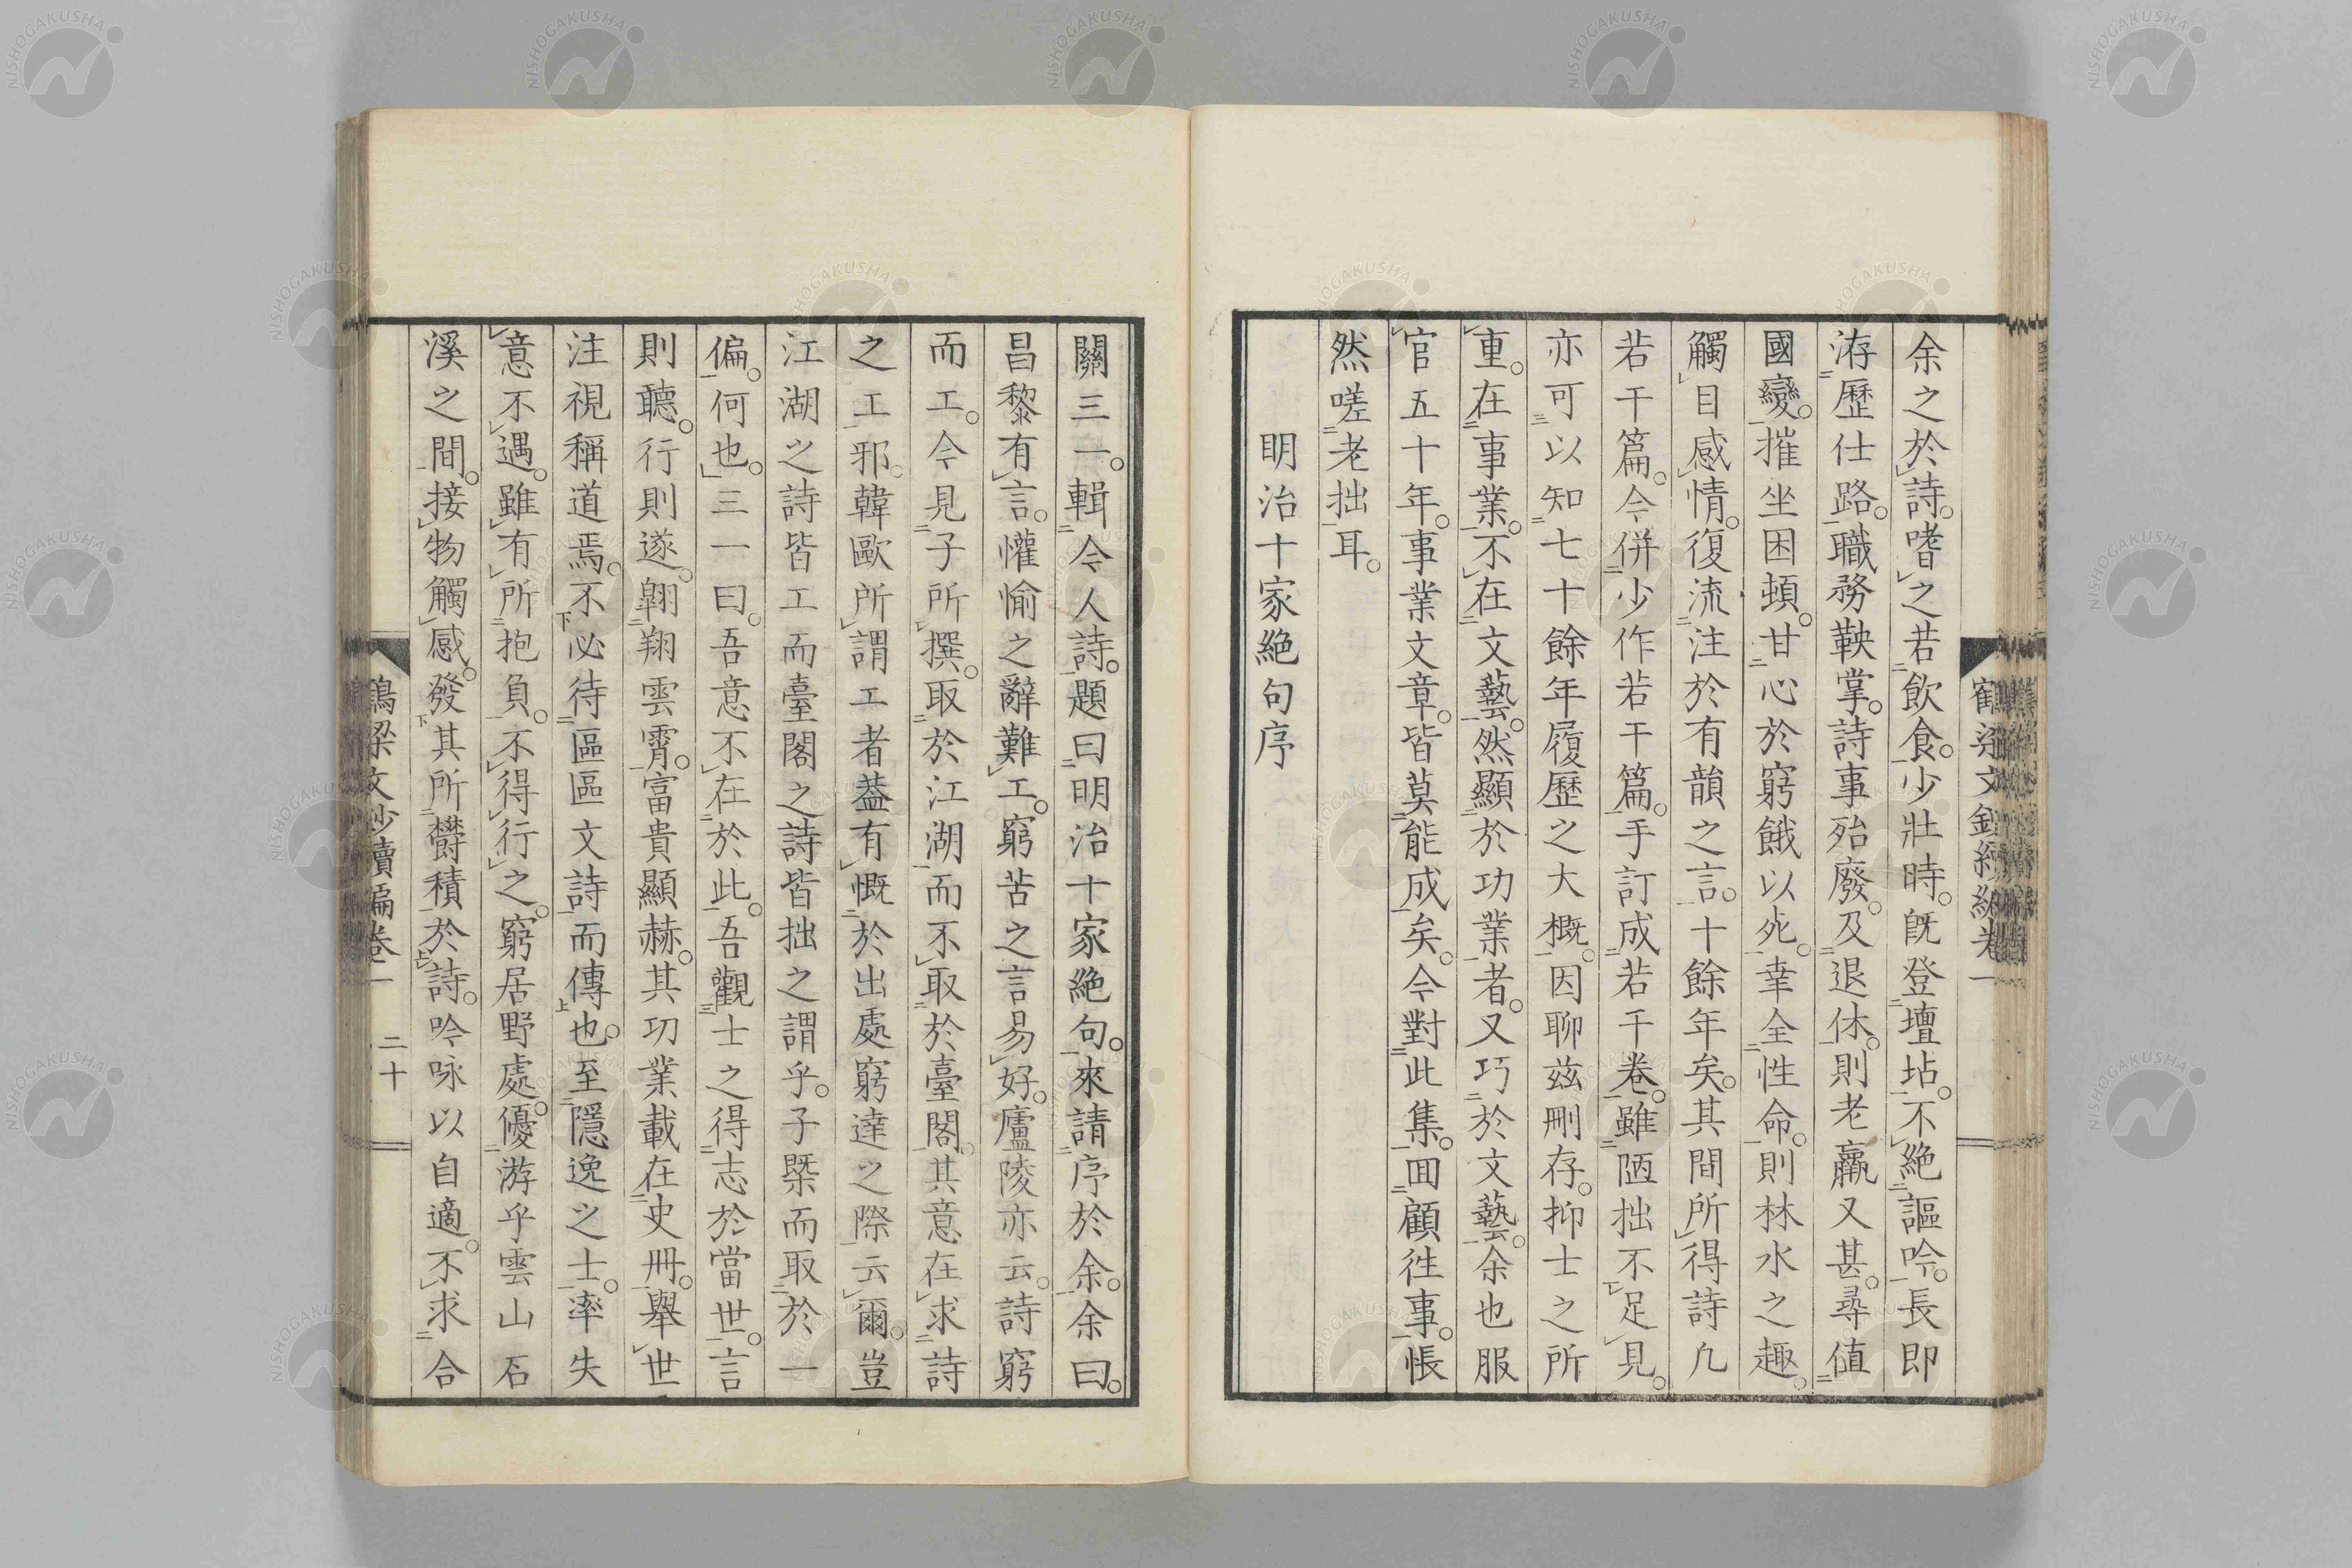 余之於詩。嗜之若飲食。少壯時。既登壇坫。不絶謳吟。長即
洊歷仕路。職務鞅掌。詩事殆廢。及退休。則老羸又甚。尋值
國變。摧坐困頓。甘心於窮餓以死。幸全性命。則林水之趣。
觸目感情。復流注於有韻之言。十餘年矣。其間所得詩凡
若干篇。今併少作若干篇。手訂成若干卷。雖陋拙不足見。
亦可以知七十餘年履歷之大概。因聊茲刪存。抑士之所
重。在事業。不在文藝。然顯於功業者。又巧於文藝。余也服
官五十年。事業文章。皆莫能成矣。今對此集。回顧往事。悵
然嗟老拙耳。
明治十家絶句序
關三一。輯今人詩。題曰明治十家絶句。來請序於余。余曰。
昌黎有言。懽愉之辭難工。窮苦之言易好。廬陵亦云。詩窮
而工。今見子所撰。取於江湖。而不取於臺閣。其意在求詩
之工邪。韓歐所謂工者。蓋有慨於出處窮達之際云爾。豈
江湖之詩皆工而臺閣之詩皆拙之謂乎。子槩而取於一
偏。何也。三一曰。吾意不在於此。吾觀士之得志於當世。言
則聽。行則遂。翱翔雲霄。富貴顯赫。其功業載在史冊。舉世
注視稱道焉。不必待區區文詩而傳也。至隱逸之士。率失
意不遇。雖有所抱負。不得行之。窮居野處。優游乎雲山石
溪之間。接物觸感。發其所欝積於詩。吟咏以自適。不求合
鶴梁文鈔續編卷一
二十